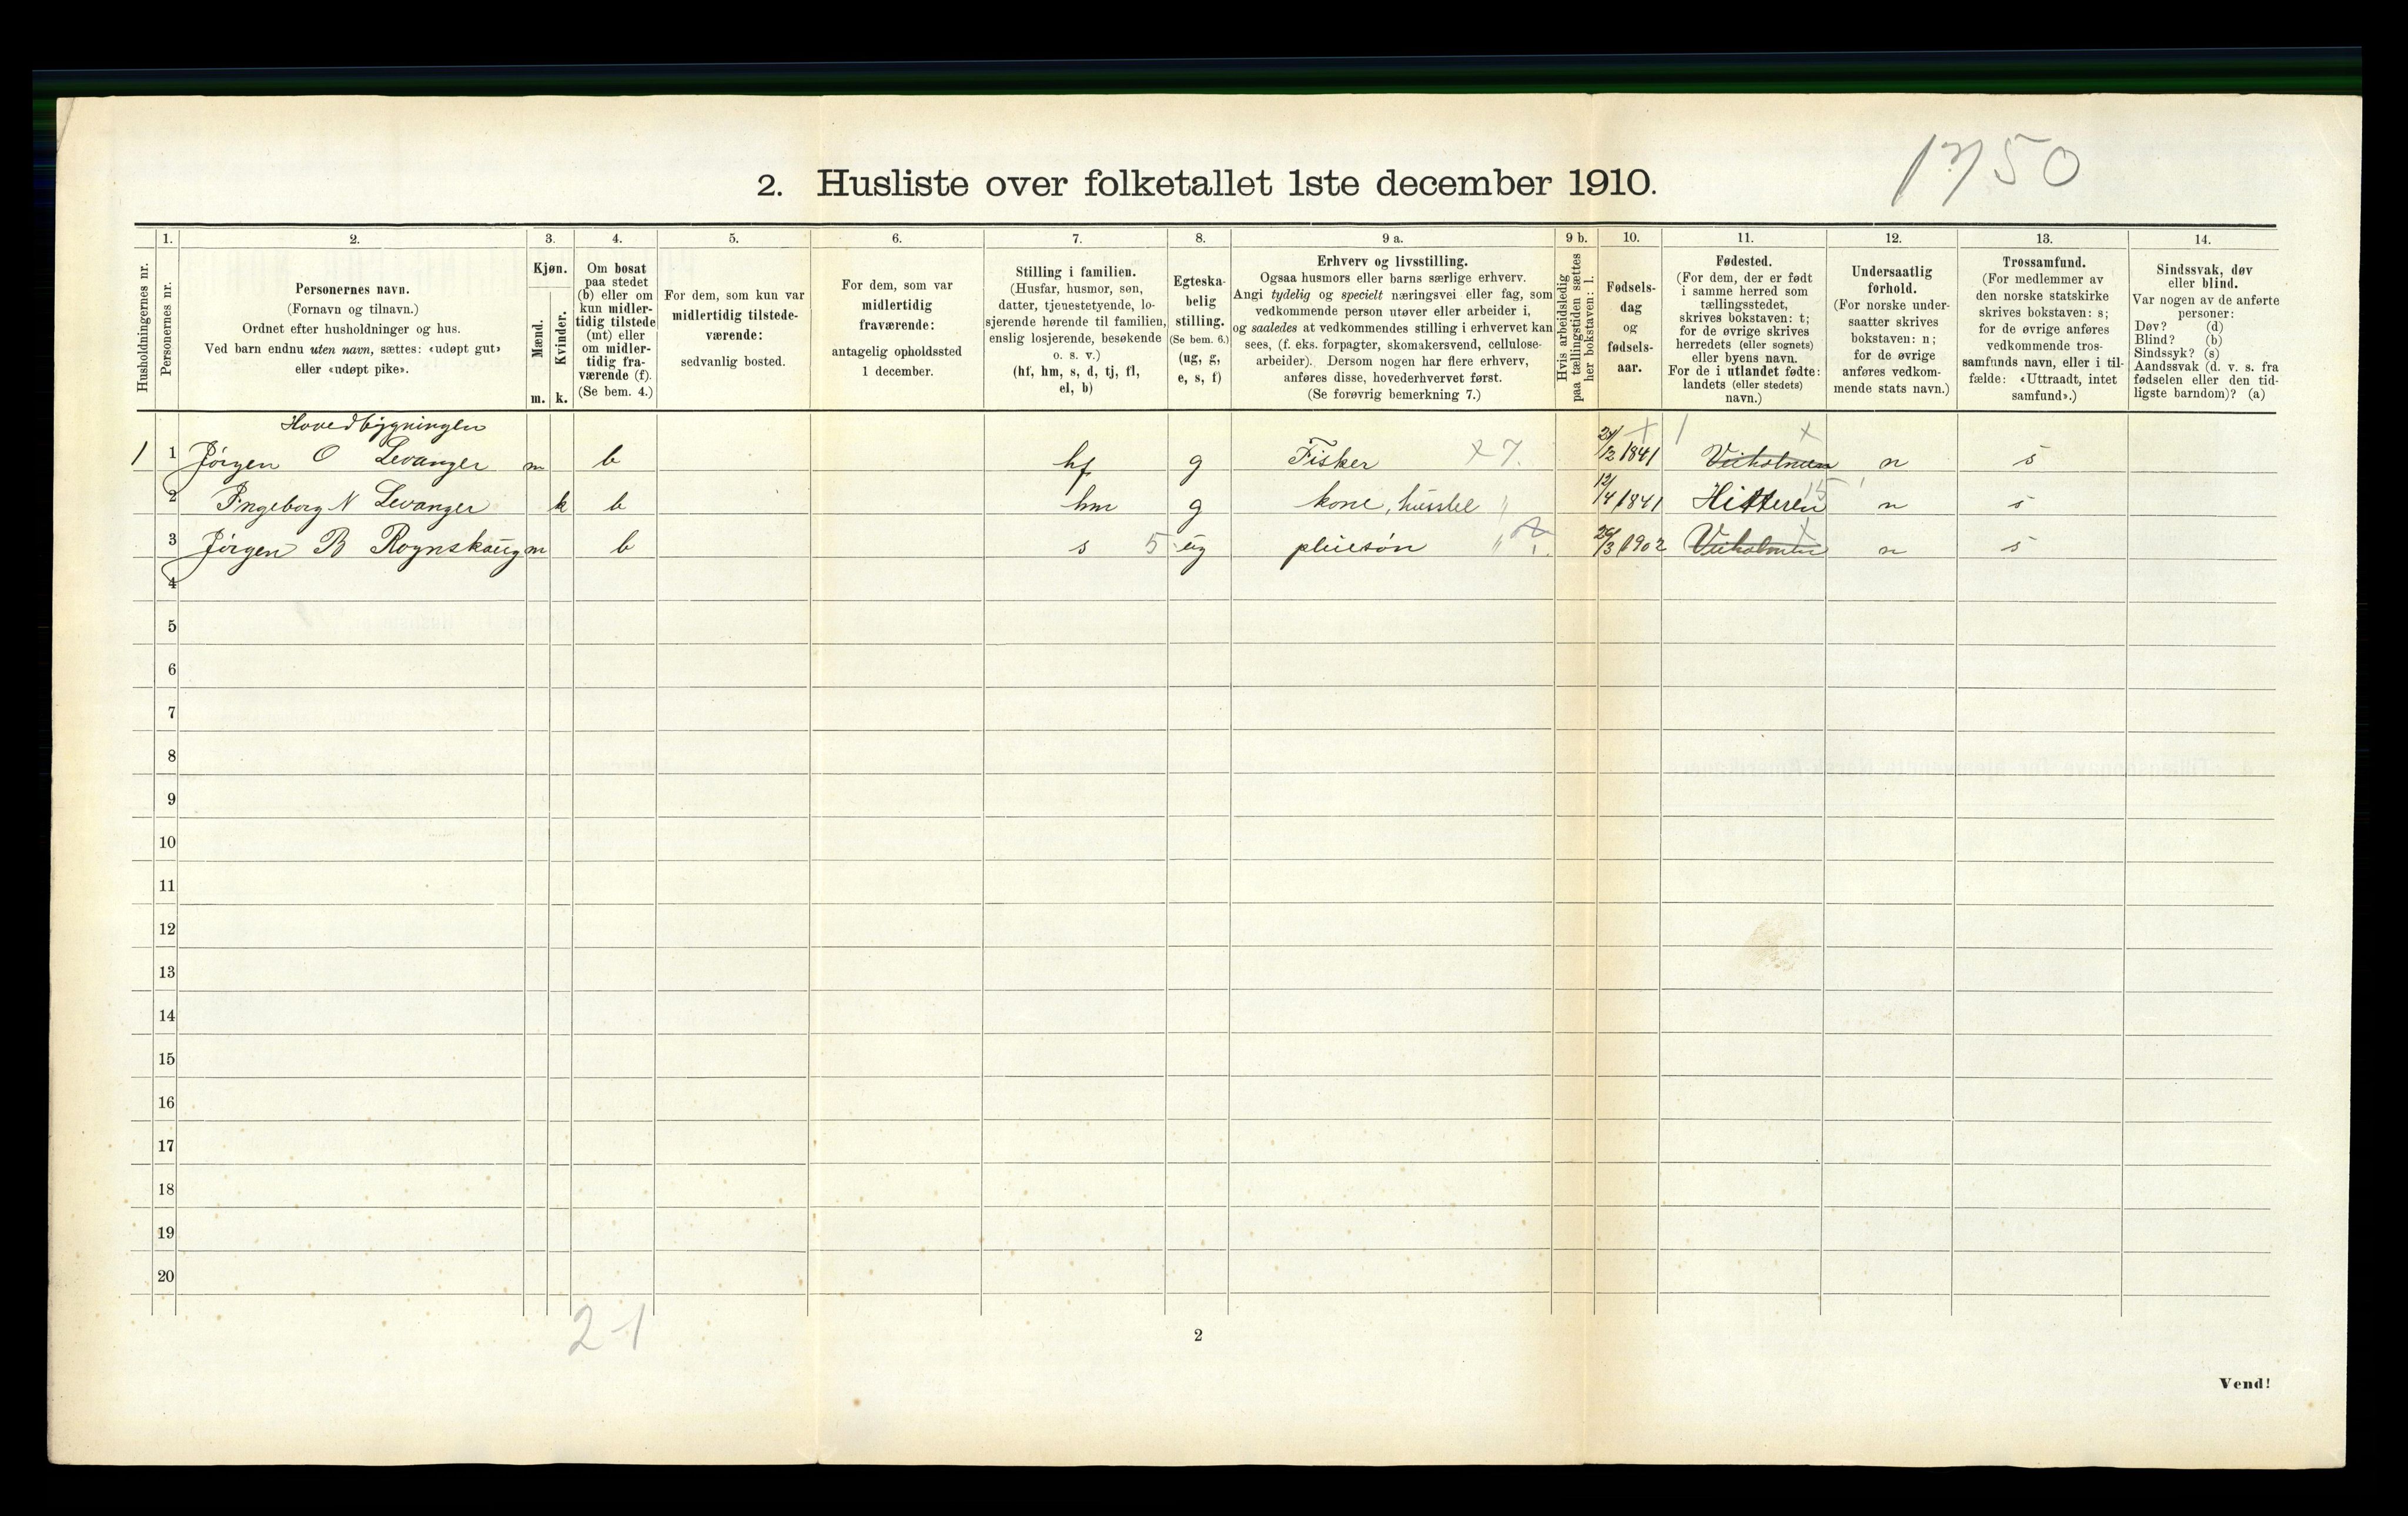 1750
2. Husliste over folketallet 1ste december 1910.
Husholdningernes nr.
1.
Personernes nr.
2.
Personernes navn.
(Fornavn og tilnavn.)
Ordnet efter husholdninger og hus.
Ved barn endnu uten navn, sættes: «udøpt gut»
eller «udøpt pike».
3.
Kjøn.
Mænd.
Kvinder.
m. k.
4.
Om bosat
paa stedet
(b) eller om
kun midler-
tidig tilstede
(mt) eller
om midler-
tidig fra-
værende (f).
(Se bem. 4.)
5.
For dem, som kun var
midlertidig tilstede-
værende:
sedvanlig bosted.
6.
For dem, som var
midlertidig
fraværende:
antagelig opholdssted
1 december.
7.
Stilling i familien.
(Husfar, husmor, søn,
datter, tjenestetyende, lo-
sjerende hørende til familien,
enslig losjerende, besøkende
o. s. v.)
(hf, hm, s, d, tj, fl,
el, b)
8.
Egteska-
belig
stilling.
(Se bem. 6.)
(ug, g,
e, s, f)
9 a.
Erhverv og livsstilling.
Ogsaa husmors eller barns særlige erhverv.
Angi tydelig og specielt næringsvei eller fag, som
vedkommende person utøver eller arbeider i,
og saaledes at vedkommendes stilling i erhvervet kan
sees, (f. eks. forpagter, skomakersvend, cellulose-
arbeider). Dersom nogen har flere erhverv,
anføres disse, hovederhvervet først.
(Se forøvrig bemerkning 7.)
9 b.
Hvis arbeidsledig
paa tællingstiden sættes
her bokstaven: l.
10.
Fødsels-
dag
og
fødsels-
aar.
11.
Fødested.
(For dem, der er født
i samme herred som
tællingsstedet,
skrives bokstaven: t;
for de øvrige skrives
herredets (eller sognets)
eller byens navn.
For de i utlandet fødte:
landets (eller stedets)
navn.)
12.
Undersaatlig
forhold.
(For norske under-
saatter skrives
bokstaven: n;
for de øvrige
anføres vedkom-
mende stats navn.)
13.
Trossamfund.
(For medlemmer av
den norske statskirke
skrives bokstaven: s;
for de øvrige anføres
vedkommende tros-
samfunds navn, eller i til-
fælde: «Uttraadt, intet
samfund».)
14.
Sindssvak, døv
eller blind.
Var nogen av de anførte
personer:
Døv? (d)
Blind? (b)
Sindssyk? (s)
Aandssvak (d. v. s. fra
fødselen eller den tid-
ligste barndom)? (a)
Hovedbygningen
1 1 Jörgen O Levanger m b hf g Fisker x 7. 1841 Veiholmen n s
2 Ingeborg N Levanger k b hm g kone, husstel 12/4 1841 Hitteren 15 n s
3 Jörgen B Rognskaug m b s 5 ug pleiesøn 26/3 1902 Veiholmen n s
4
5
6
7
8
9
10
11
12
13
14
15
16
17
18
19
20
2-1
2
Vend!